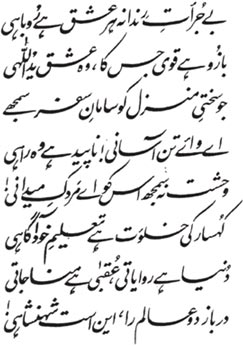 بے جرأتِ رندانہ ہر عشق ہے روباہی
بازو ہے قوی جس کا، وہ عشق یداللّٰہی
جو سختیِ منزل کو سامانِ سفر سمجھے
اے وائے تن آسانی! ناپید ہے وہ راہی
وحشت نہ سمجھ اس کو اے مردکِ میدانی!
کہسار کی خلوت ہے تعلیمِ خود آگاہی
دنیا ہے روایاتی، عقبیٰ ہے مناجاتی
در باز دو عالم را، این است شہنشاہی!